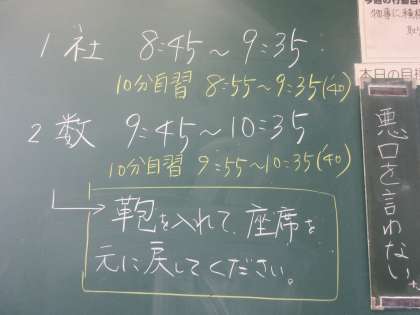 1 社 8:45～9:35
10分自習 8:55～9:35(40)
2 数 9:45～10:35
10分自習 9:55～10:35(40)
→鞄を入れて、座席を
元に戻してください。
本日の目標
悪口を言わない